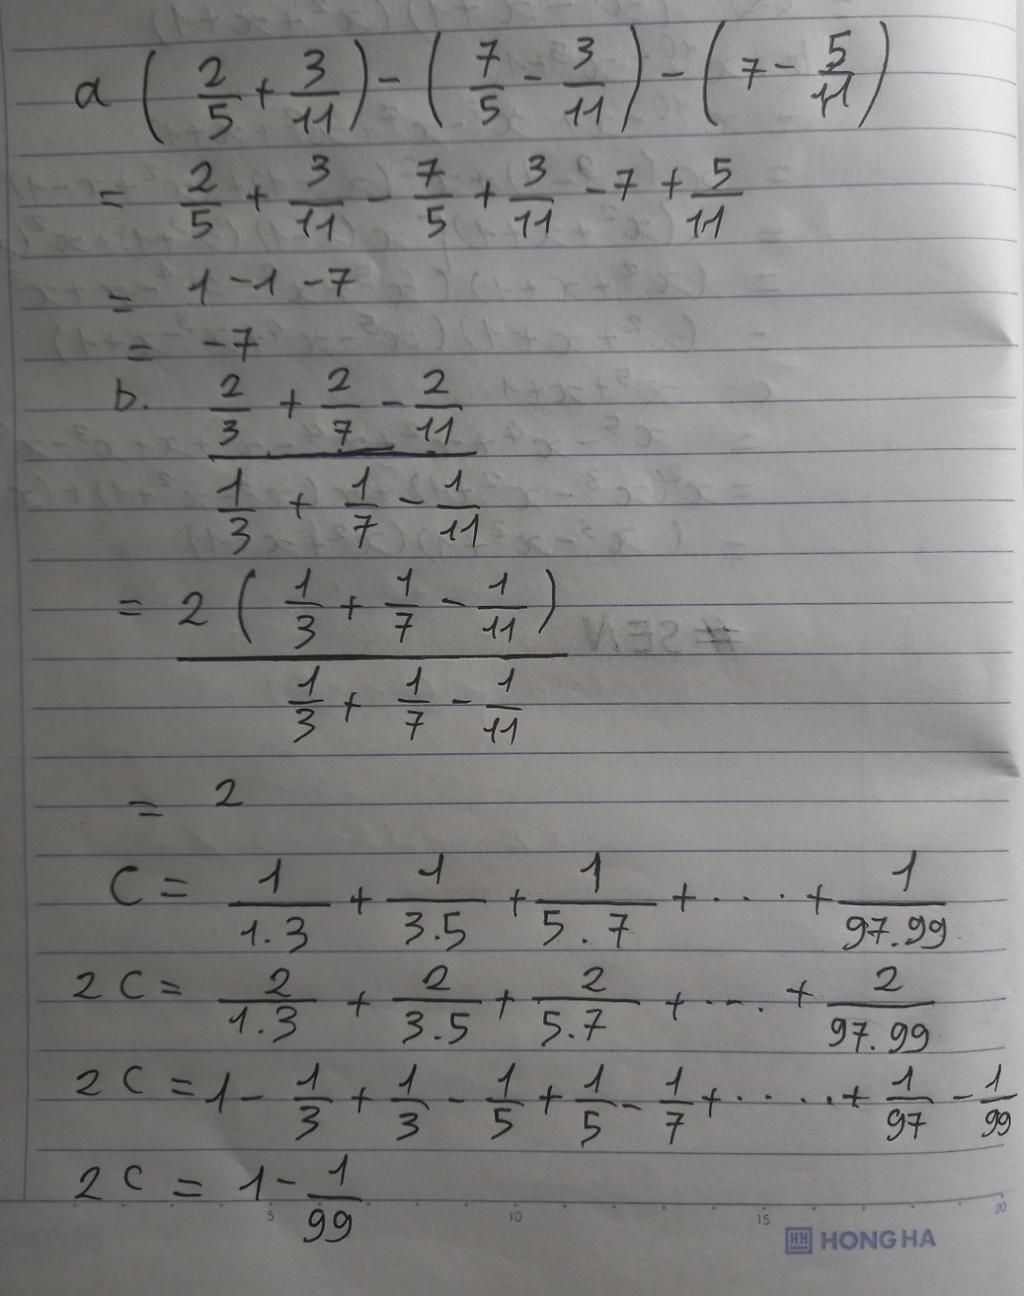 a ( 2/5 + 3/11 ) - ( 7/5 - 3/11 ) - ( 7 - 5/11 )
= 2/5 + 3/11 - 7/5 + 3/11 - 7 + 5/11
= 1 - 1 - 7
= -7
b. (2/3 + 2/7 - 2/11) / (1/3 + 1/7 - 1/11)
= 2 ( 1/3 + 1/7 - 1/11 ) / (1/3 + 1/7 - 1/11)
#SEN
= 2
C = 1/1.3 + 1/3.5 + 1/5.7 + .... + 1/97.99
2C = 2/1.3 + 2/3.5 + 2/5.7 + .... + 2/97.99
2C = 1 - 1/3 + 1/3 - 1/5 + 1/5 - 1/7 + ..... + 1/97 - 1/99
2C = 1 - 1/99
5 10 15 20
HONG HA